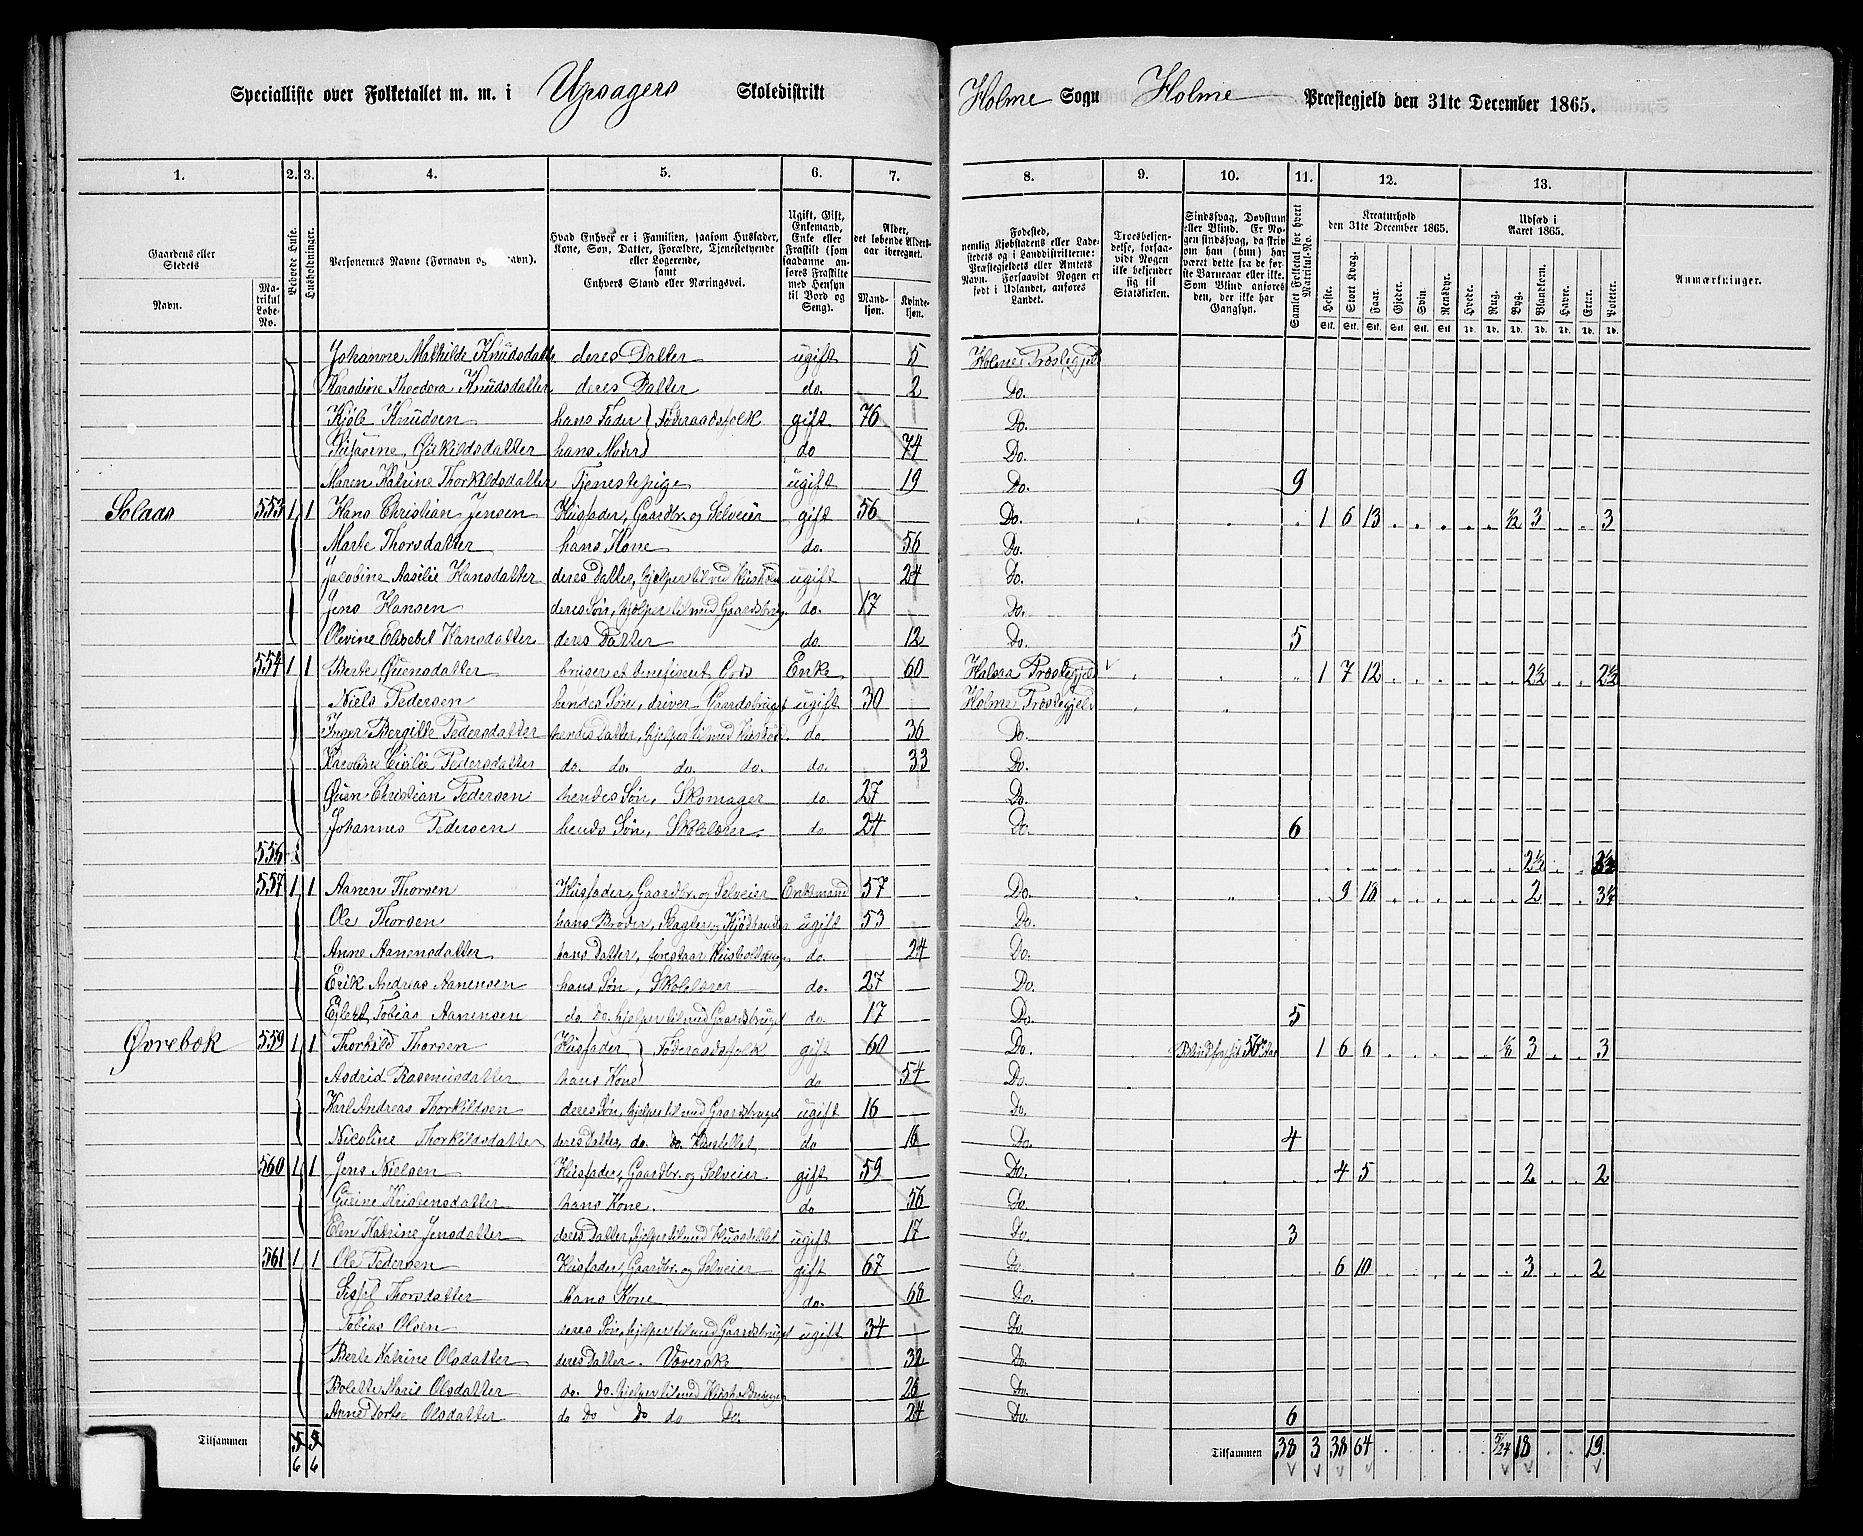 Specialliste over Folketallet m. m. i Upsagers Skoledistrikt Holme Sogn Holme Præstegjeld den 31te December 1865.
1. 2. 3. 4. 5. 6. 7. 8. 9. 10. 11. 12. 13.
Gaardens eller Stedets Navn.
Matrikul Løbe-No.
Beboede Huse.
Husholdninger.
Personernes Navne (Fornavn og
Hvad Enhver er i Familien, saasom Husfader, Kone, Søn, Datter, Forældre, Tjenestetyende eller Logerende, samt Enhvers Stand eller Næringsvei.
Ugift, Gift, Enkemand, Enke eller Fraskilt (som saadanne anføres Fraskilte med Hensyn til Bord og Seng).
Alder, det løbende Aldersaar iberegnet.
Mandkjøn. Kvindekjøn.
Fødested, nemlig Kjøbstadens eller Ladestedets og i Landdistrikterne: Præstegjeldets eller Amtets Navn. Forsaavidt Nogen er født i Udlandet, anføres Landet.
Troesbekjendelse, forsaavidt Nogen ikke bekjender sig til Statskirken.
Sindssvag, Døvstum eller Blind. Er Nogen sindssvag, da skriv om han (hun) har været dette fra de første Barneaar eller ikke. Som Blind anføres den, der ikke har Gangsyn.
Samlet Folketal for hvert Matrikul-No.
Kreaturhold den 31te December 1865.
Heste. Stort Kvæg. Faar. Gjeder. Svin. Rensdyr.
Udsæd i Aaret 1865.
Hvede. Rug. Byg. Blandkorn. Havre. Erter. Poteter.
Anmærkninger.
Johanne Mathilde Knudsdatter deres Datter ugift 5 Holme Præstegjeld
Theodora Knudsdatter deres Datter do. 2 Do.
Kjøle Knudsen hans Fader Føderaadsfolk gift 76 Do.
hans Moder do 74 Do.
Maren Katrine Thorkildsdatter Tjenestepige ugift 19 Do. 9
553 1 1 Hans Christian Jensen Husfader, Gaardbr. og Selveier gift 56 Do. 1 6 13 ½ 3 3
Marte Thorsdatter hans Kone do. 56 Do.
Jacobine Aasilie Hansdatter deres Datter, hjelper til ved ugift 24 Do.
Jens Hansen deres Søn, hjelper til med Gaardsbrug. do. 17 Do.
Olevine Elisebet Hansdatter deres Datter do. 12 Do. 5
554 1 1 Berte bruger et beneficeret Gods Enke 60 Halsaa Præstegjeld 1 7 12 2½ 2½
Niels Pedersen hendes Søn, driver Gaardsbruget ugift 30 Holme Præstegjeld
Inger Bergitte Pedersdatter hendes Datter, hjelper til med do. 36 Do.
Cicilie Pedersdatter do. do. do. do. do. 33 Do.
Christian Pedersen hendes Søn, Skomager do. 27 Do.
Johannes Pedersen hends Søn, Skolelærer. do. 24 Do. 6
556 2½
557 1 1 Aanen Thorsen Husfader, Gaardbr. og Selveier Enkemand 57 Do. 3 10 2 3½
Ole Thorsen hans Broder, ugift 53 Do.
Anne Aanensdatter hans Datter, forestaar do. 24 Do.
Erik Andreas Aanensen hans Søn, Skolelærer do. 27 Do.
Eilert Tobias Aanensen do. do. hjelper til med Gaardsbruget do. 17 Do. 5
Øvrebøk 559 1 1 Thorkild Thorsen Husfader Føderaadsfolk gift 60 Do. Blind 1 6 6 ⅛ 3 3
Asdrid Rasmusdatter hans Kone do 54 Do.
Karl Andreas Thorkildsen deres Søn, hjelper til med Gaardsbruget ugift 16 Do.
Nicoline Thorkildsdatter deres Datter, do. do. Husstellet do 16 Do. 4
560 1 1 Jens Nielsen Husfader, Gaardbr. og Selveier gift 59 Do. 4 5 2 2
Gurine hans Kone. do 56 Do.
Elen Katrine Jensdatter deres Datter, hjelper til med Husstellet ugift 17 Do. 3
561 1 1 Ole Pedersen Husfader, Gaardbr. og Selveier gift 67 Do. 6 10 3 2
Thorsdatter hans Kone do. 68 Do.
Tobias Olsen deres Søn, hjelper til med Gaardsbruget ugift 34 Do.
Berte Katrine Olsdatter deres Datter. Væverske 32 Do.
Bolette Marie Olsdatter do. do. hjelper til med Husholdningen 26 Do.
Anne Dorte Olsdatter do Do Do do Do 24 Do. 6
Tilsammen 5 5 Tilsammen 38 3 38 64 5/24 18 19.
6 6